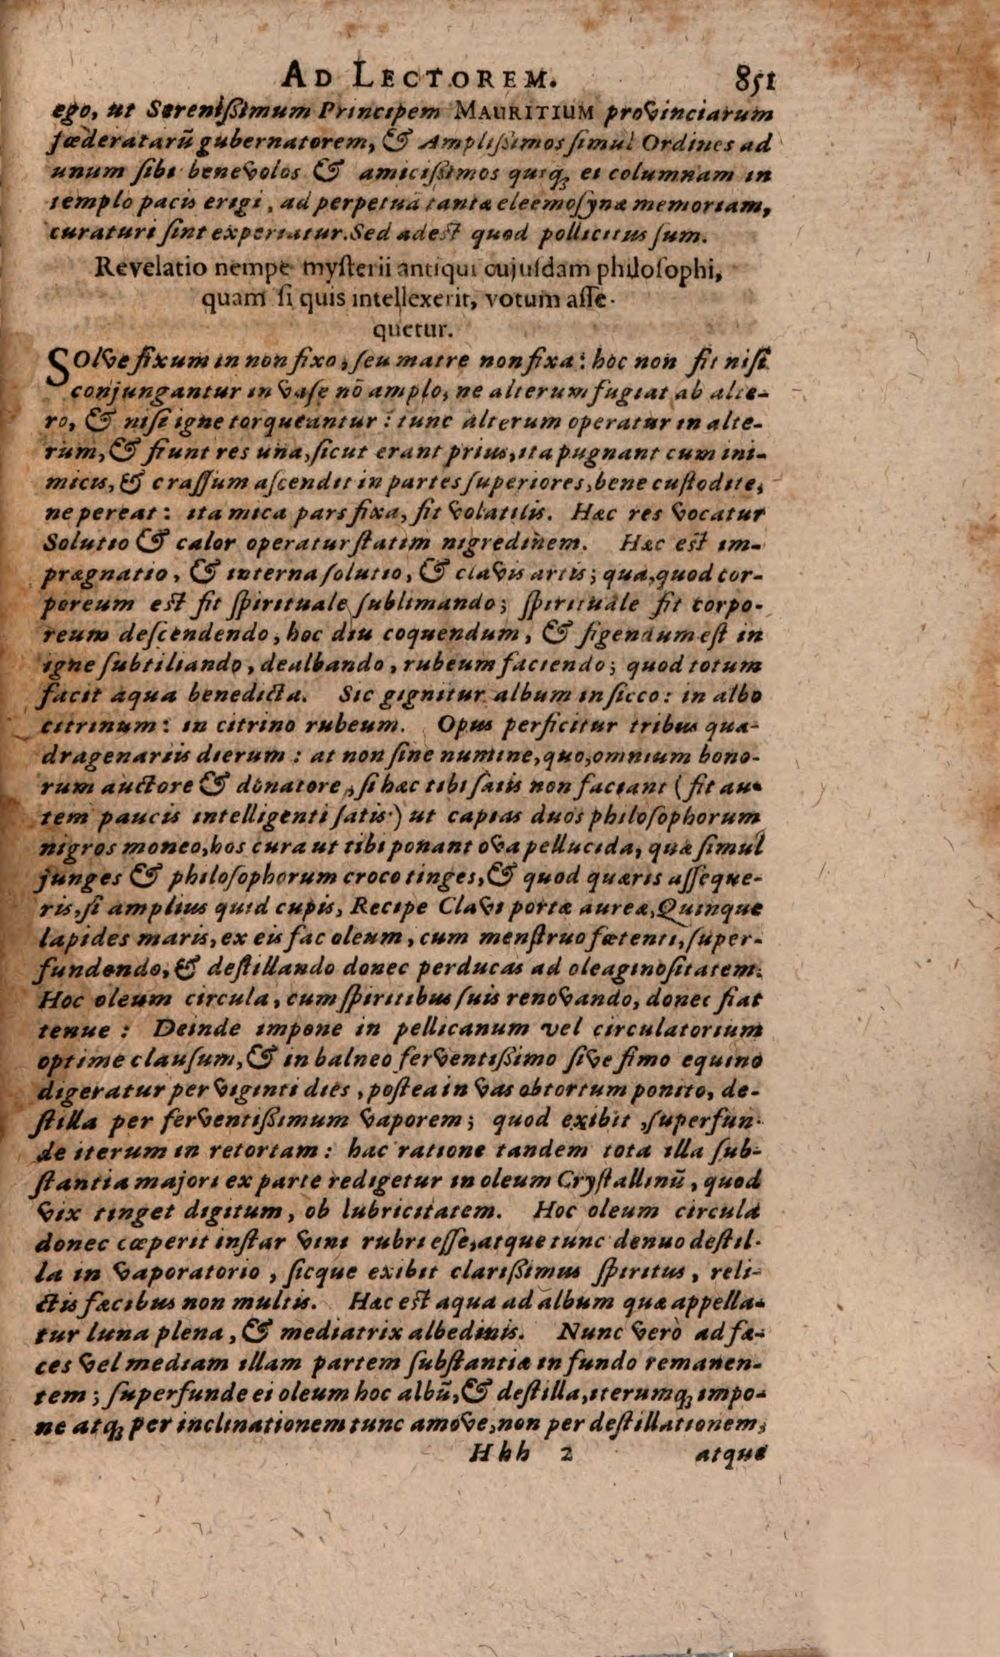 AD LECTOREM. 851
ego, ut Serenißimum Principem MAURITIUM provinciarum
fœderatarū gubernatorem, & Amplißimos ſimul Ordines ad
unum ſibi benevolos & amicißimos quiqꝫ ei columnam in
templo pacis erigi, ad perpetuā tantæ eleemoſynæ memoriam,
curaturi ſint experiatur. Sed adest quod pollicitus ſum.
Revelatio nempe myſterii antiqui cujuſdam philoſophi,
quam ſi quis intellexerit, votum aſſe-
quetur.
SOlve fixum in non fixo, ſeu matre non fixa: hoc non fit niſi
conjungantur in vaſe nō amplo, ne alterum fugiat ab alte-
ro, & niſi igne torqueantur: tunc alterum operatur in alte-
rum, & fiunt res una, ſicut erant prius, ita pugnant cum ini-
micis, & craſſum aſcendit in partes ſuperiores, bene cuſtodite,
ne pereat: ita mica pars fixa, fit volatilis. Hæc res vocatur
Solutio & calor operatur ſtatim nigredinem. Hæc est im-
prægnatio, & interna ſolutio, & clavis artis; qua, quod cor-
poreum est fit ſpirituale ſublimando; ſpirituale fit corpo-
reum deſcendendo, hoc diu coquendum, & figendum eſt in
igne ſubtiliando, dealbando, rubeum faciendo; quod totum
facit aqua benedicta. Sic gignitur album in ſicco: in albo
citrinum: in citrino rubeum. Opus perficitur tribus qua-
dragenariis dierum: at non ſine numine, quo, omnium bono-
rum auctore & donatore, ſi hæc tibi ſatis non faciant (fit au-
tem paucis intelligenti ſatis) ut capias duos philoſophorum
nigros moneo, hos cura ut tibi ponant ova pellucida, quæ ſimul
junges & philoſophorum croco tinges, & quod quæris aſſeque-
ris, ſi amplius quid cupis, Recipe Clavi portæ aureæ, Quinque
lapides maris, ex eis fac oleum, cum menſtruo fœtenti, ſuper-
fundendo, & deſtillando donec perducas ad oleaginoſitatem.
Hoc oleum circula, cum ſpiritibus ſuis renovando, donec fiat
tenue: Deinde impone in pellicanum vel circulatorium
optime clauſum, & in balneo ferventißimo ſive fimo equino
digeratur per viginti dies, poſtea in vas obtortum ponito, de-
ſtilla per ferventißimum vaporem; quod exibit, ſuperfun-
de iterum in retortam: hac ratione tandem tota illa ſub-
ſtantia majori ex parte redigetur in oleum Cryſtallinū, quod
vix tinget digitum, ob lubricitatem. Hoc oleum circula
donec cœperit inſtar vini rubri eſſe, atque tunc denuo deſtil-
la in vaporatorio, ſicque exibit clarißimus ſpiritus, reli-
ctis fæcibus non multis. Hæc est aqua ad album quæ appella-
tur luna plena, & mediatrix albedinis. Nunc verò ad fæ-
ces vel mediam illam partem ſubſtantiæ in fundo remanen-
tem; ſuperfunde ei oleum hoc albū, & deſtilla, iterumqꝫ impo-
ne atqꝫ per inclinationem tunc amove, non per deſtillationem,
Hhh 2 atque